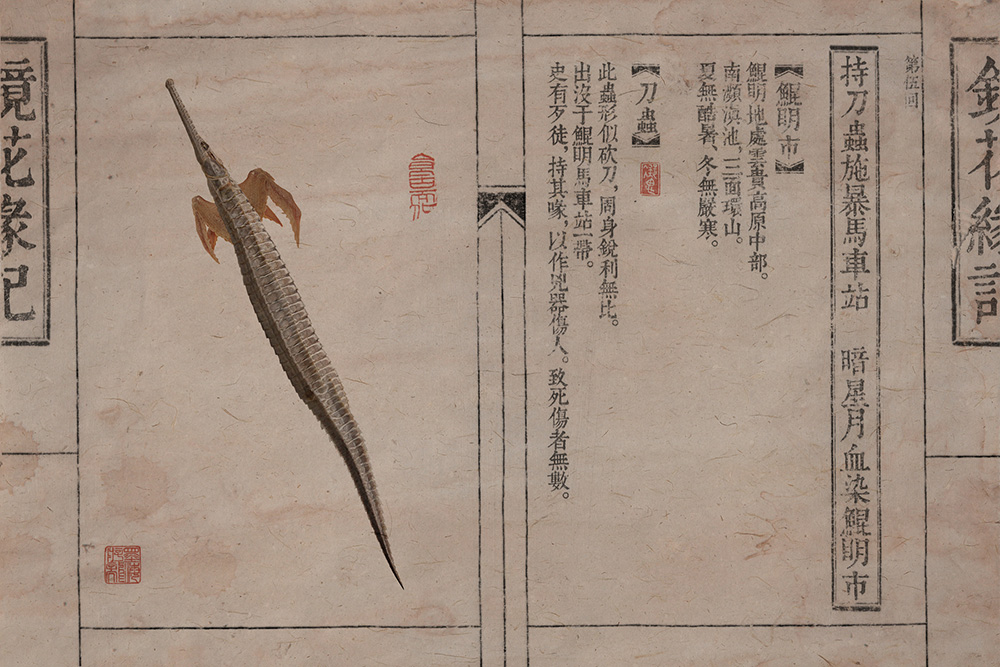 鏡花緣記
第伍回
持刀蟲施暴馬車站　暗星月血染鯤明市
【鯤明市】
鯤明地處雲貴高原中部。
南瀕滇池，三面環山。
夏無酷暑、冬無嚴寒。
【刀蟲】
此蟲形似砍刀，周身銳利無比。
出沒于鯤明馬車站一帶。
史有歹徒，持其喙，以作兇器傷人。致死傷者無數。
鏡花緣記